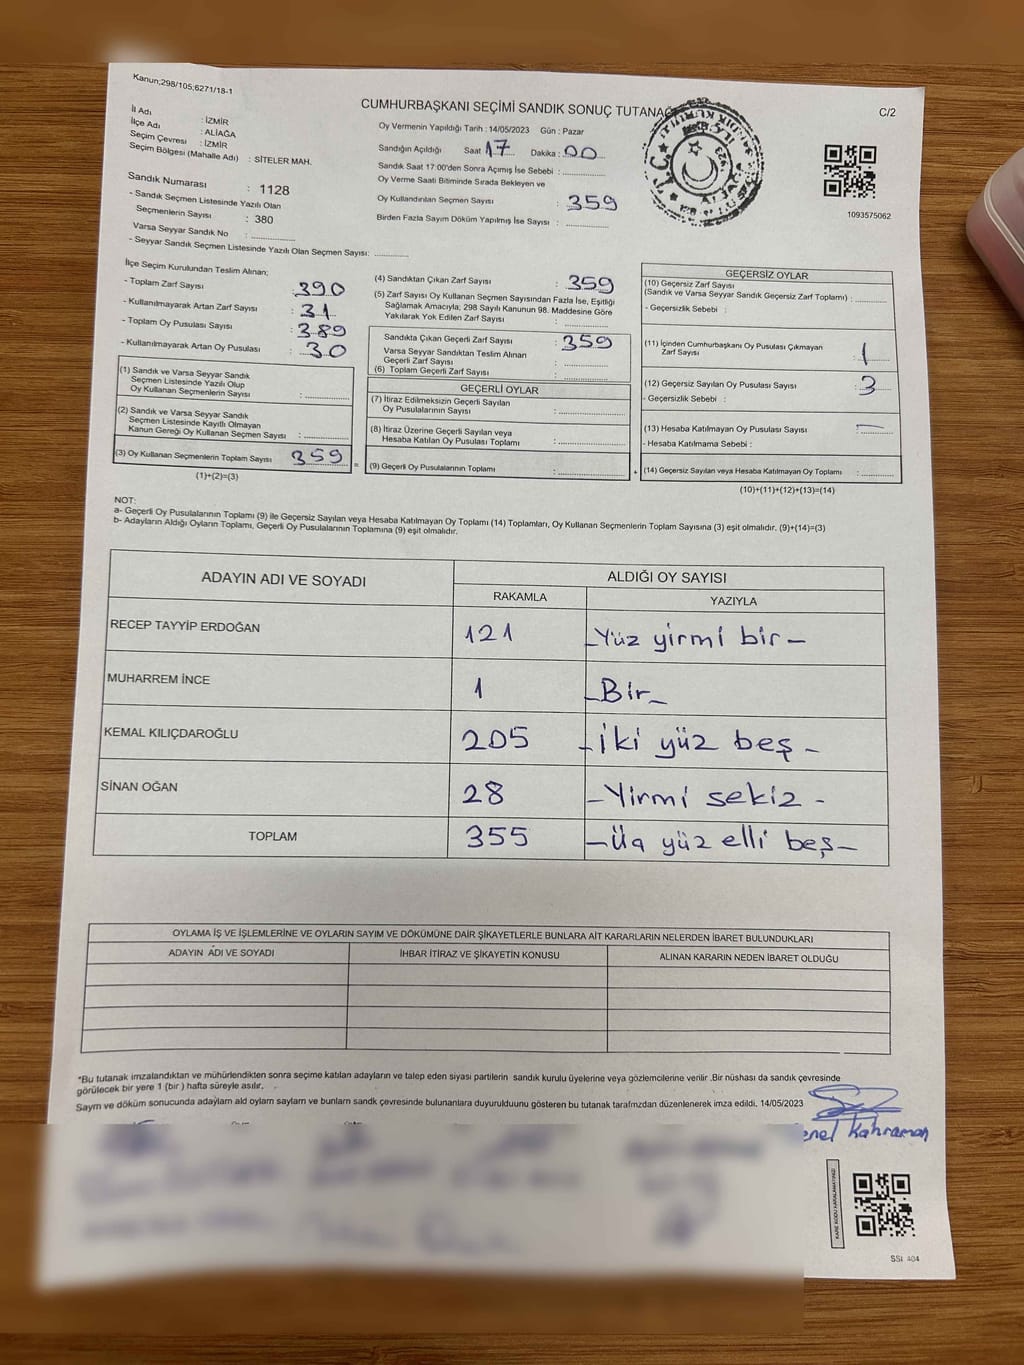 Kanun;298/105;6271/18-1
CUMHURBAŞKANI SEÇİMİ SANDIK SONUÇ TUTANAĞI
C/2
İl Adı : İZMİR
İlçe Adı : ALİAĞA
Seçim Çevresi : İZMİR
Seçim Bölgesi (Mahalle Adı) : SİTELER MAH.
Sandık Numarası : 1128
- Sandık Seçmen Listesinde Yazılı Olan
Seçmenlerin Sayısı : 380
Varsa Seyyar Sandık No : ..............
- Seyyar Sandık Seçmen Listesinde Yazılı Olan Seçmen Sayısı: ............
Oy Vermenin Yapıldığı Tarih : 14/05/2023 Gün : Pazar
Sandığın Açıldığı Saat 17 Dakika : 00
Sandık Saat 17:00'den Sonra Açımış İse Sebebi : ..............
Oy Verme Saati Bitiminde Sırada Bekleyen ve
Oy Kullandırılan Seçmen Sayısı : 359
Birden Fazla Sayım Döküm Yapılmış İse Sayısı : ..............
ALİAĞA
1093575062
İlçe Seçim Kurulundan Teslim Alınan;
- Toplam Zarf Sayısı : 390
- Kullanılmayarak Artan Zarf Sayısı : 31
- Toplam Oy Pusulası Sayısı : 389
- Kullanılmayarak Artan Oy Pusulası : 30
(1) Sandık ve Varsa Seyyar Sandık
Seçmen Listesinde Yazılı Olup
Oy Kullanan Seçmenlerin Sayısı : ..............
(2) Sandık ve Varsa Seyyar Sandık
Seçmen Listesinde Kayıtlı Olmayan
Kanun Gereği Oy Kullanan Seçmen Sayısı : ..............
(3) Oy Kullanan Seçmenlerin Toplam Sayısı 359
(1)+(2)=(3)
=
(4) Sandıktan Çıkan Zarf Sayısı : 359
(5) Zarf Sayısı Oy Kullanan Seçmen Sayısından Fazla İse, Eşitliği
Sağlamak Amacıyla; 298 Sayılı Kanunun 98. Maddesine Göre
Yakılarak Yok Edilen Zarf Sayısı : ..............
Sandıkta Çıkan Geçerli Zarf Sayısı : 359
Varsa Seyyar Sandıktan Teslim Alınan
Geçerli Zarf Sayısı : ..............
(6) Toplam Geçerli Zarf Sayısı : ..............
GEÇERLİ OYLAR
(7) İtiraz Edilmeksizin Geçerli Sayılan
Oy Pusulalarının Sayısı : ..............
(8) İtiraz Üzerine Geçerli Sayılan veya
Hesaba Katılan Oy Pusulası Toplamı : ..............
(9) Geçerli Oy Pusulalarının Toplamı : ..............
+
GEÇERSİZ OYLAR
(10) Geçersiz Zarf Sayısı
(Sandık ve Varsa Seyyar Sandık Geçersiz Zarf Toplamı) : ..........
- Geçersizlik Sebebi :
(11) İçinden Cumhurbaşkanı Oy Pusulası Çıkmayan
Zarf Sayısı : 1
(12) Geçersiz Sayılan Oy Pusulası Sayısı : 3
- Geçersizlik Sebebi :
(13) Hesaba Katılmayan Oy Pusulası Sayısı : —
- Hesaba Katılmama Sebebi :
(14) Geçersiz Sayılan veya Hesaba Katılmayan Oy Toplamı : ..........
(10)+(11)+(12)+(13)=(14)
NOT:
a- Geçerli Oy Pusulalarının Toplamı (9) ile Geçersiz Sayılan veya Hesaba Katılmayan Oy Toplamı (14) Toplamları, Oy Kullanan Seçmenlerin Toplam Sayısına (3) eşit olmalıdır. (9)+(14)=(3)
b- Adayların Aldığı Oyların Toplamı, Geçerli Oy Pusulalarının Toplamına (9) eşit olmalıdır.
ADAYIN ADI VE SOYADI ALDIĞI OY SAYISI
RAKAMLA YAZIYLA
RECEP TAYYİP ERDOĞAN 121 -Yüz yirmi bir-
MUHARREM İNCE 1 -Bir-
KEMAL KILIÇDAROĞLU 205 -iki yüz beş-
SİNAN OĞAN 28 -Yirmi sekiz-
TOPLAM 355 -Üç yüz elli beş-
OYLAMA İŞ VE İŞLEMLERİNE VE OYLARIN SAYIM VE DÖKÜMÜNE DAİR ŞİKAYETLERLE BUNLARA AİT KARARLARIN NELERDEN İBARET BULUNDUKLARI
ADAYIN ADI VE SOYADI İHBAR İTİRAZ VE ŞİKAYETİN KONUSU ALINAN KARARIN NEDEN İBARET OLDUĞU
*Bu tutanak imzalandıktan ve mühürlendikten sonra seçime katılan adayların ve talep eden siyasi partilerin sandık kurulu üyelerine veya gözlemcilerine verilir .Bir nüshası da sandık çevresinde
görülecek bir yere 1 (bir ) hafta süreyle asılır.
Sayım ve döküm sonucunda adayların aldı oyların sayıları ve bunların sandık çevresinde bulunanlara duyurulduunu gösteren bu tutanak tarafımızdan düzenlenerek imza edildi. 14/05/2023
enel Kahraman
KARE KODU KARALAMAYINIZ!
SSİ 404